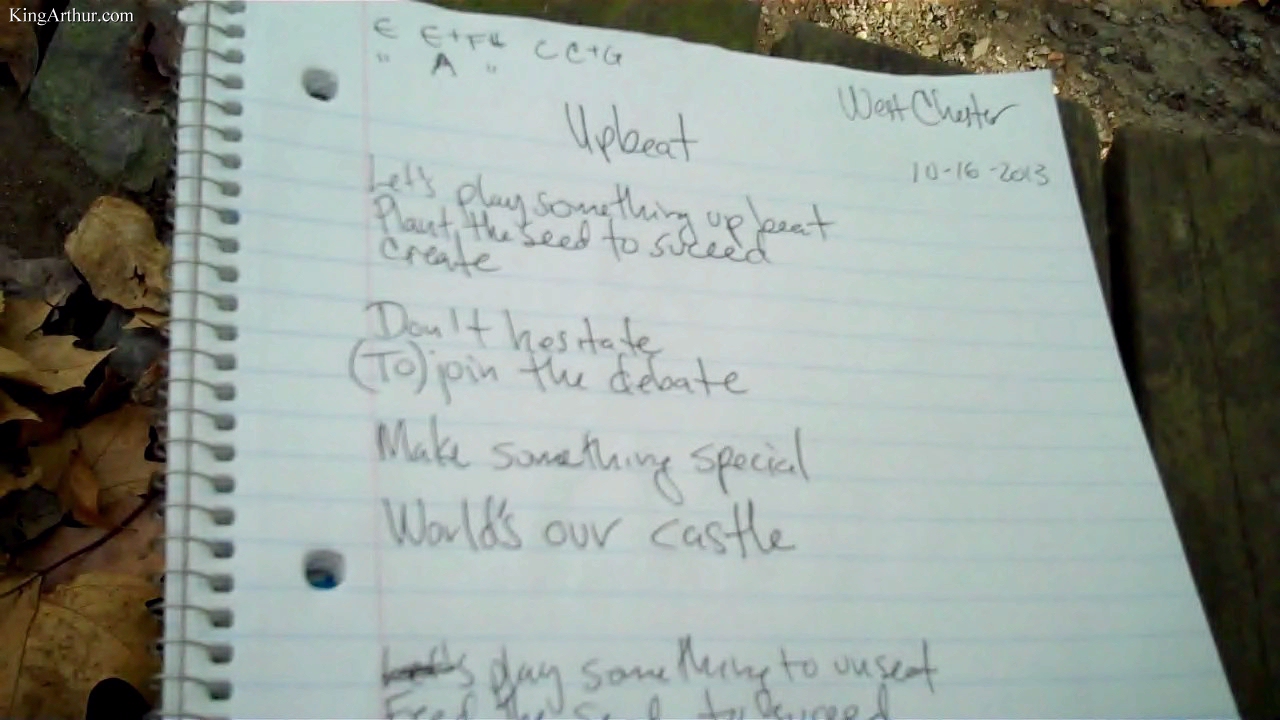 KingArthur.com
E E+F# C C+G
" A "
West Chester
Upbeat
10-16-2013
Let's play something upbeat
Plant the seed to suceed
Create
Don't hesitate
(To) join the debate
Make something special
World's our castle
play something to unseat
Feed the seed to suceed